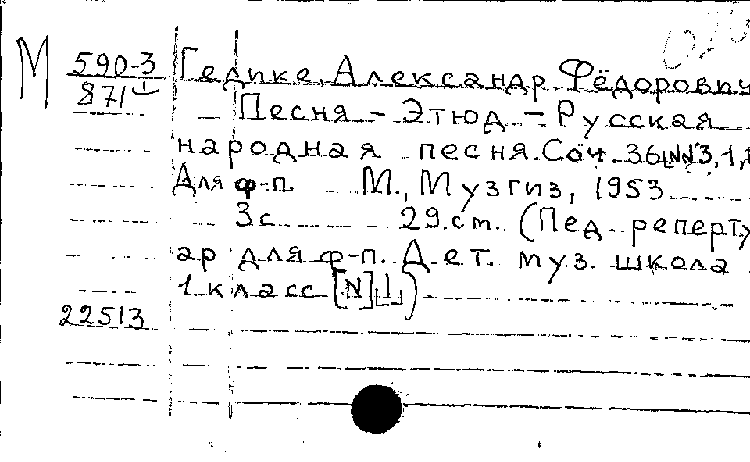 М 590-3 Гедике, Александр Фёдорович
871 Песня - Этюд - Русская
народная песня. Соч. 36 NN 3, 1,
Для ф-п. М., Музгиз, 1953
3с. 29 см. (Пед. реперту
ар для ф-п. Дет. муз. школа
1 класс [N] 1)
22513